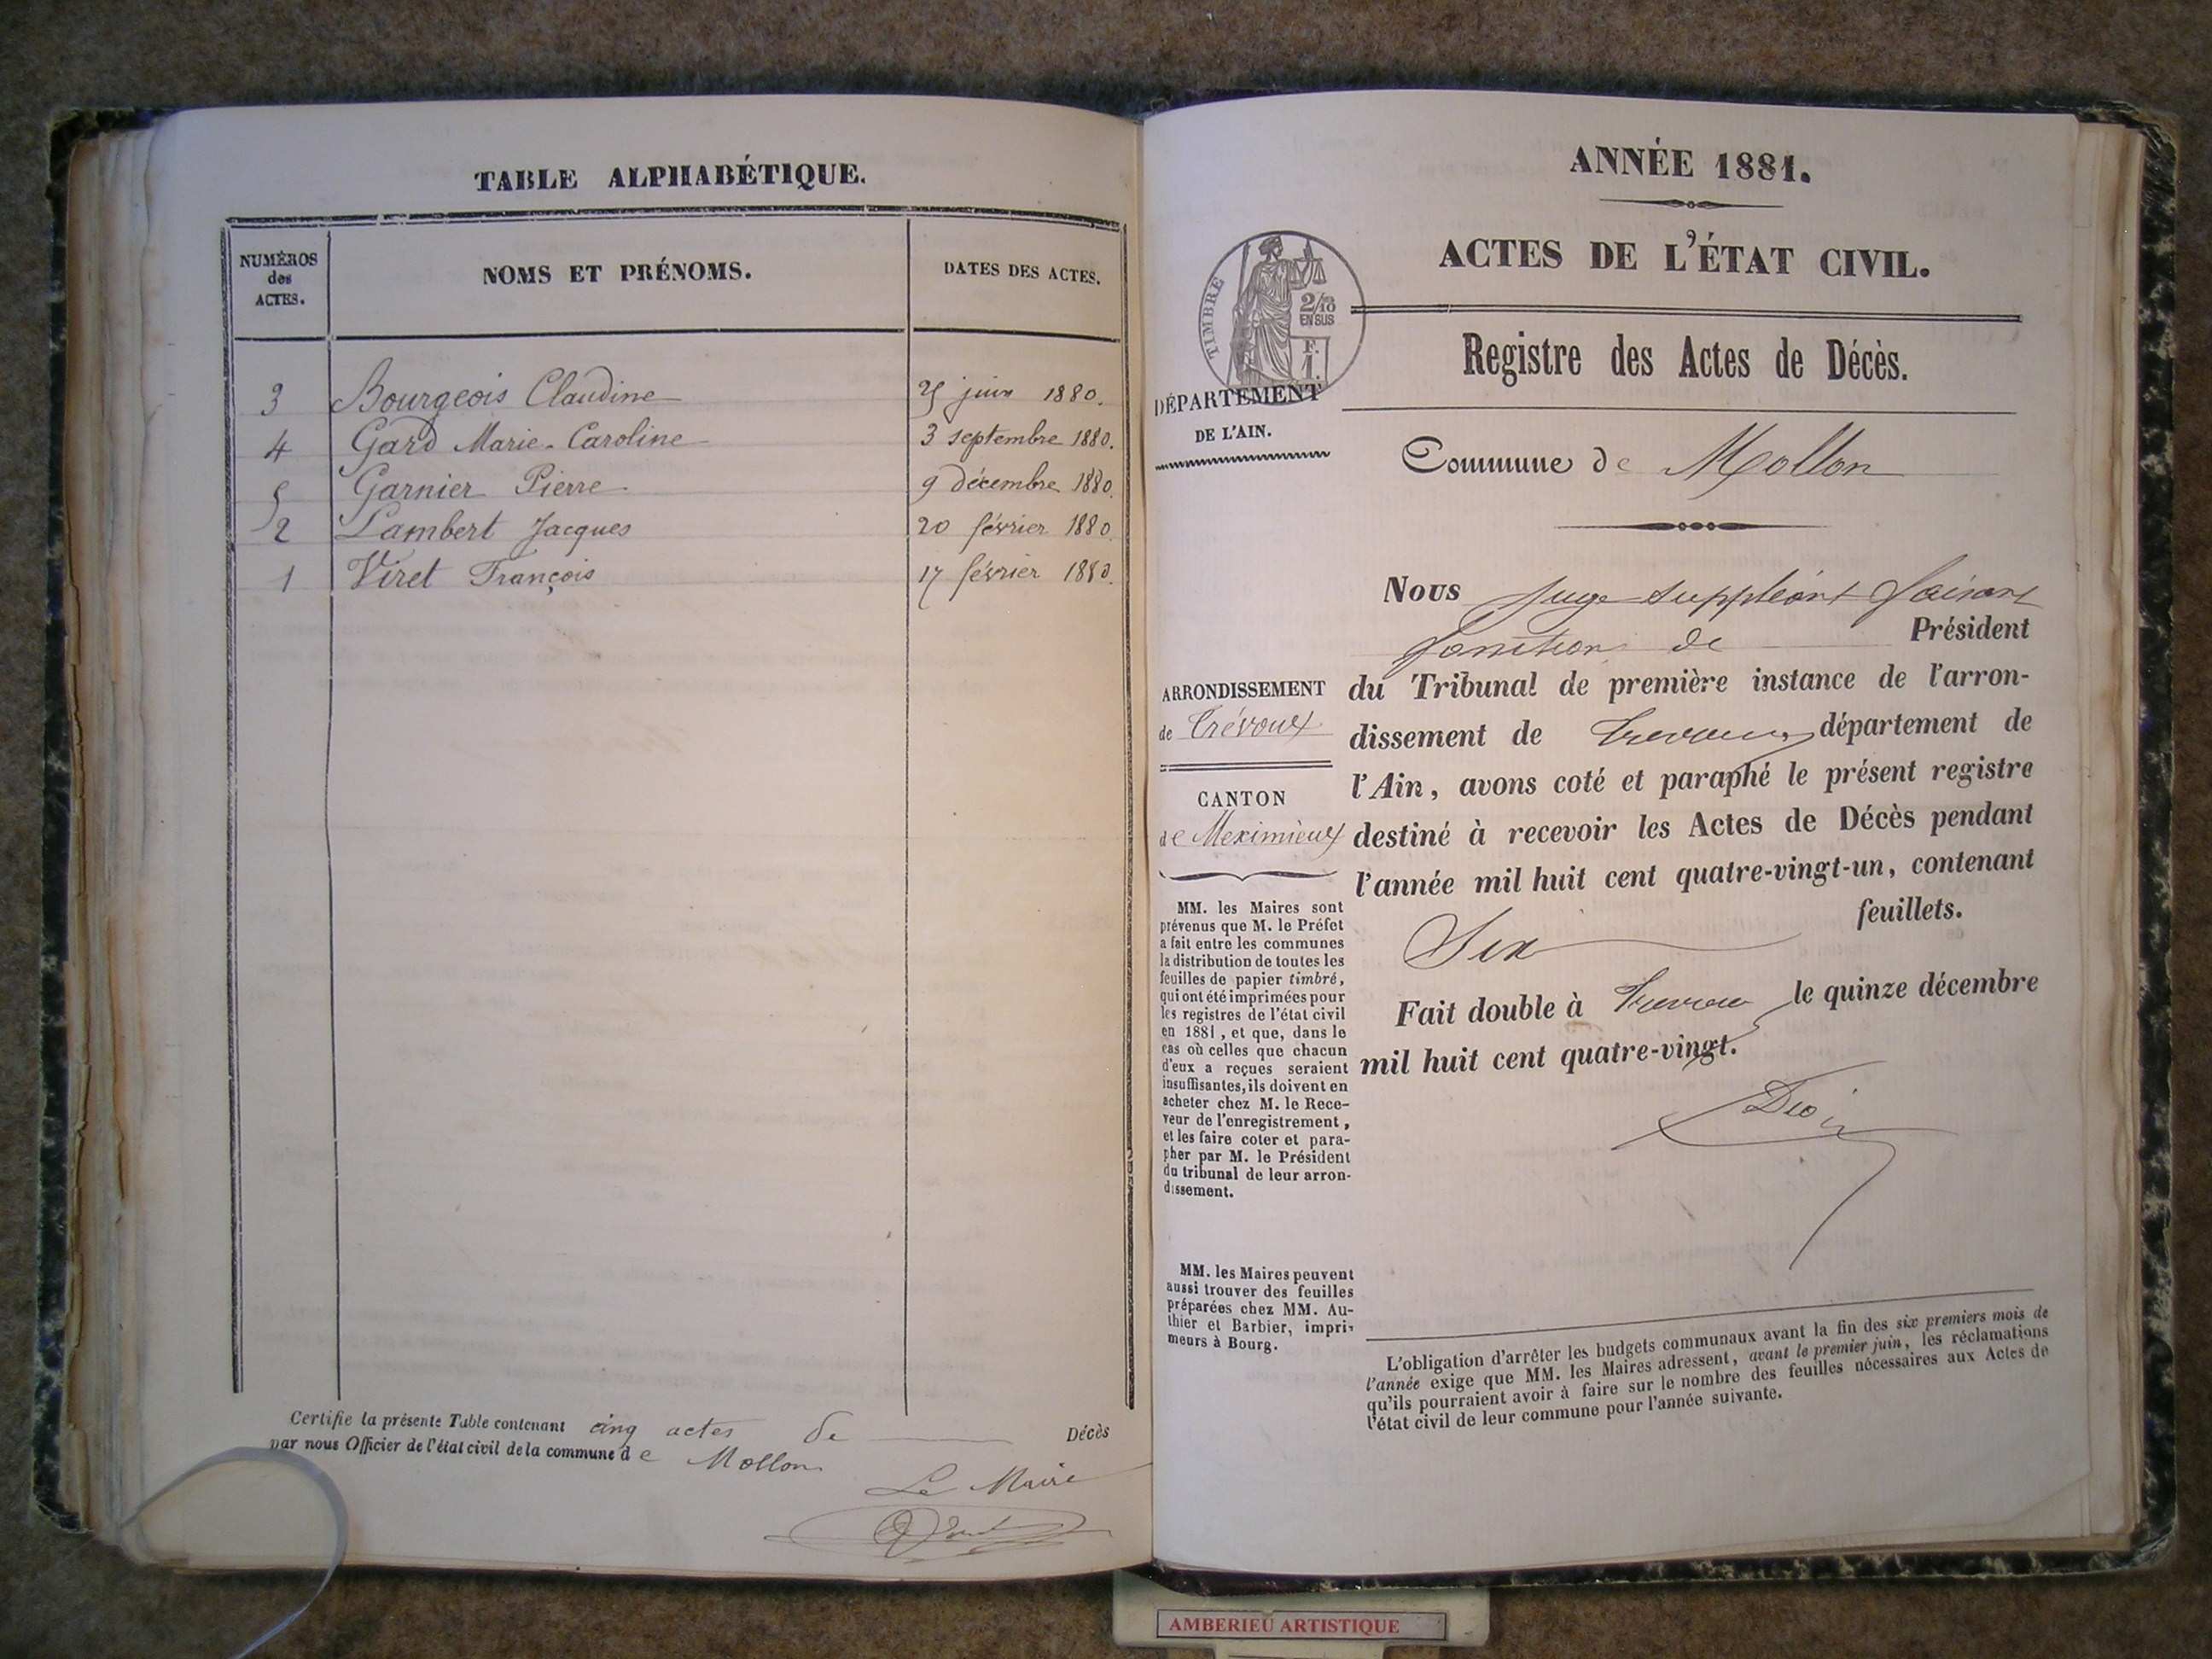 TABLE ALPHABÉTIQUE.
NUMÉROS des ACTES.
NOMS ET PRÉNOMS.
DATES DES ACTES.
3 Bourgeois Claudine juin 1880.
4 Gard Marie-Caroline 3 septembre 1880.
5 Garnier Pierre 9 décembre 1880.
2 Lambert Jacques 20 février 1880.
1 Viret François 17 février 1880.
Certifie la présente Table contenant cinq actes de Décès
par nous Officier de l'état civil de la commune de Mollon
Le Maire
ANNÉE 1881.
ACTES DE L'ÉTAT CIVIL.
TIMBRE
2/10
EN SUS
F.
1.
Registre des Actes de Décès.
DÉPARTEMENT
DE L'AIN.
Commune de Mollon
ARRONDISSEMENT
de Trévoux
CANTON
de Meximieux
MM. les Maires sont
prévenus que M. le Préfet
a fait entre les communes
la distribution de toutes les
feuilles de papier timbré,
qui ont été imprimées pour
les registres de l'état civil
en 1881, et que, dans le
cas où celles que chacun
d'eux a reçues seraient
insuffisantes, ils doivent en
acheter chez M. le Rece-
veur de l'enregistrement,
et les faire coter et para-
pher par M. le Président
du tribunal de leur arron-
dissement.
MM. les Maires peuvent
aussi trouver des feuilles
préparées chez MM. Au-
thier et Barbier, impri-
meurs à Bourg.
Nous Juge suppléant faisant
fonction de Président
du Tribunal de première instance de l'arron-
dissement de Trevoux département de
l'Ain, avons coté et paraphé le présent registre
destiné à recevoir les Actes de Décès pendant
l'année mil huit cent quatre-vingt-un, contenant
Six feuillets.
Fait double à Trevoux le quinze décembre
mil huit cent quatre-vingt.
L'obligation d'arrêter les budgets communaux avant la fin des six premiers mois de
l'année exige que MM. les Maires adressent, avant le premier juin, les réclamations
qu'ils pourraient avoir à faire sur le nombre des feuilles nécessaires aux Actes de
l'état civil de leur commune pour l'année suivante.
AMBERIEU ARTISTIQUE